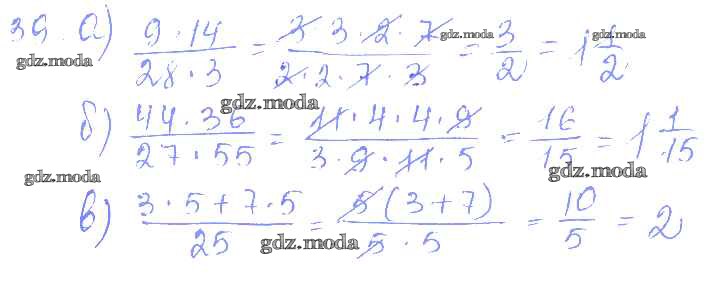 39. а) 9·14/28·3 = 3·3·2·7/2·2·7·3 = 3/2 = 1 1/2
gdz.moda gdz.moda gdz.moda
gdz.moda
б) 44·36/27·55 = 11·4·4·9/3·9·11·5 = 16/15 = 1 1/15
gdz.moda gdz.moda
в) 3·5+7·5/25 = 5(3+7)/5·5 = 10/5 = 2
gdz.moda